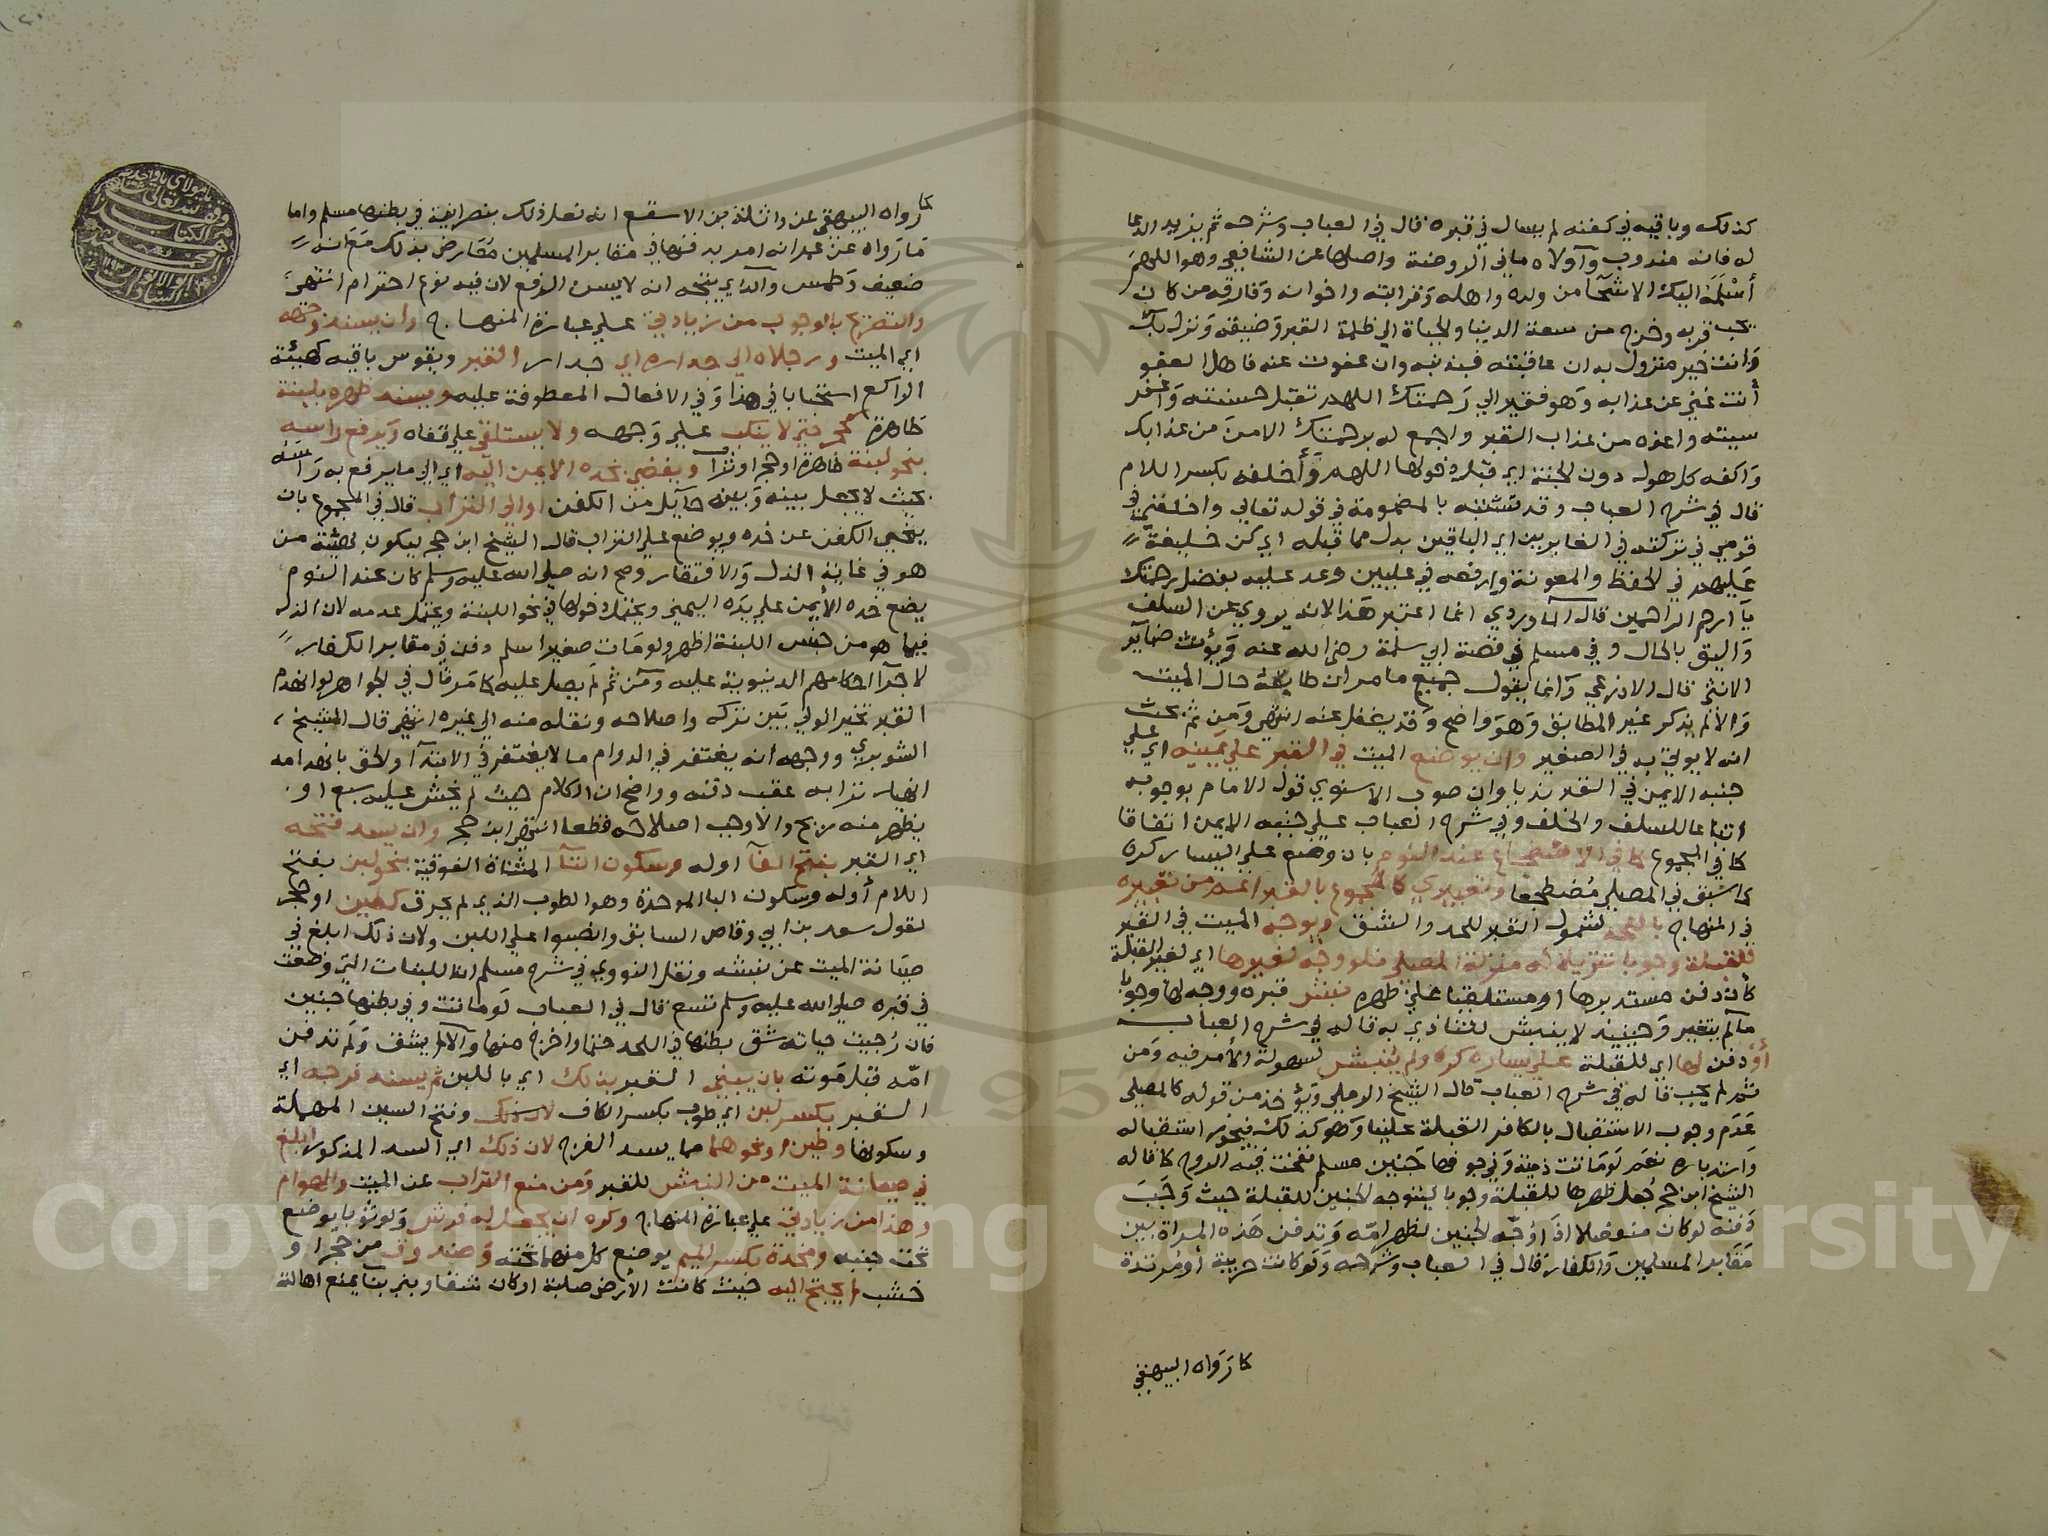 كذلك وباقيه في كفنه لم يسال في قبره قال في العباب وشرحه ثم يزيد الدعا
له فانه مندوب وآولاه ما في الروضة واصلها عن الشافعي وهو اللهم
أسلمه اليك الاشحآ من ولده واهله وقرابته واخوانه وفارقه من كان
يحب قربه وخرج من سعة الدنيا والحياة الي ظلمة القبر وضيقه ونزل بك
وانت خير منزول به ان عاقبته فبذنبه وان عفوت عنه فاهل العفو
أنت غني عن عذابه وهو فقير الي رحمتك اللهم تقبل حسنته واغفر
سيئته واعذه من عذاب القبر واجمع له برحمتك الامن من عذابك
واكفه كل هول دون الجنة اي قبل دخولها اللهم وأخلفه بكسر اللام
قال في شرح العباب وقد تشتبه بالمضمومة في قوله تعالي واخلفني في
قومي في تركته في الغابرين اي الباقين بدل مما قبله اي كن خليفة
عليهم في الحفظ والمعونة وارفعه في عليين وعد عليه بفضل رحمتك
يآ ارحم الراحمين قال الماوردي انما اعتبر هذا لانه يروي عن السلف
واليق بالحال وفي مسلم في قصة ابي سلمة رضي الله عنه ويؤنث ضمآير
الانثي قال الاذرعي وانما يقول جميع ما مر ان طابقه حال الميت
والا لم يذكر غير المطابق وهو واضح وقد يغفل عنه انتهي ومن ثم بحث
انه لا يوتي به في الصغير وان يوضع الميت في القبر علي يمينه اي علي
جنبه الايمن في القبر ندبا وان صوب الاسنوي قول الامام بوجوبه
اتباعا للسلف والخلف وفي شرح العباب علي جنبه الايمن اتفاقا
كما في المجموع كما في الاضطجاع عند النوم بان وضع علي اليسار كره
كما سبق في المصلي مضطجعا وتعبيري كالمجموع بالقبر اعم من تعبيره
في المنهاج باللحد لشمول القبر للحد والشق ويوجه الميت في القبر
للقبلة وجوبا تنزيلا له منزلة المصلي فلو وجه لغيرها اي لغير القبلة
كأن دفن مستدبرها او مستلقيا علي ظهره نبش قبره ووجه لها وجوبا
ما لم يتغير وحينيذ لا ينبش للتاذي به قاله في شرح العباب
أو دفن لها اي للقبلة علي يساره كره ولم ينبش لسهولة الأمر فيه ومن
ثم لم يجب قاله في شرح العباب قال الشيخ الرملي ويؤخذ من قوله كالمصلي
عدم وجوب الاستقبال بالكافر القبلة علينا وهو كذلك فيجوز استقباله
واستدباره نعم لو ماتت ذمية وفي جوفها جنين مسلم نفخت فيه الروح كما قاله
الشيخ ابن حجر جعل ظهرها للقبلة وجوبا ليتوجه الجنين للقبلة حيث وجب
دفنه لو كان منفصلا اذا وجه الجنين لظهر امه وتدفن هذه المراة بين
مقابر المسلمين والكفار قال في العباب وشرحه ولو كانت حربية أو مرتدة
كما رواه البيهقي
كما رواه البيهقي عن واثلة بن الاسقع انه فعل ذلك بنصرانية في بطنها مسلم واما
ما رواه عن عمر انه امر بدفنها في مقابر المسلمين معارض بذلك مع انه
ضعيف وطمس والذي يتجه انه لا يسن الرفع لان فيه نوع احترام انتهي
والتصريح بالوجوب من زيادتي علي عبارة المنهاج وان يسند وجهه
اي الميت ورجلاه الي جداره اي جدار القبر ويقوس باقيه كهيئة
الراكع استحبابا في هذا وفي الافعال المعطوفة عليه ويسند ظهره بلبنة
طاهرة كحجر حتي لا ينكب علي وجهه ولا يستلقي علي قفاه ويرفع راسه
بنحو لبنة طاهرة او حجر او تراب ويفضي بخده الايمن اليه اي الي ما يرفع به راسه
بحيث لا يجعل بينه وبينه حآيل من الكفن او الي التراب قال في المجموع بان
ينحي الكفن عن خده ويوضع علي التراب قال الشيخ ابن حجر ليكون بهيئة من
هو في غاية الذل والافتقار وصح انه صلي الله عليه وسلم كان عند النوم
يضع خده الأيمن علي يده اليمني ويحتمل دخولها في نحو اللبنة ويحتمل عدمه لان الذل
فيما هو من جنس اللبنة اظهر ولو مات صغير اسلم دفن في مقابر الكفار
لاجرآ احكامهم الدنيوية عليه ومن ثم لم يصل عليه كما مر قال في الجواهر لو انهدم
القبر تخير الولي بين تركه واصلاحه ونقله منه الي غيره انتهي قال الشيخ
الشوبري ووجهه انه يغتفر في الدوام ما لا يغتفر في الابتدآ والحق بانهدامه
انهيار ترابه عقب دفنه وواضح ان الكلام حيث لم يخش عليه سبع او
يظهر منه ريح والا وجب اصلاحه قطعا انتهي ابن حجر وان يسد فتحه
اي القبر بفتح الفآ اوله وسكون التآ المثناة الفوقية بنحو لبن بفتح
اللام أوله وسكون البا الموحدة وهو الطوب الذي لم يحرق كطين او حجر
لقول سعد بن ابي وقاص السابق وانصبوا علي اللبن ولان ذلك ابلغ في
صيانة الميت عن نبشه ونقل النووي في شرح مسلم ان اللبنات التي وضعت
في قبره صلي الله عليه وسلم تسع قال في العباب لو ماتت وفي بطنها جنين
فان رجيت حياته شق بطنها في اللحد حتما واخرج منها والا لم يشق ولم تدفن
امه قبل موته بان يبني القبر بذلك اي باللبن ثم يسد فرجه اي
القبر بكسر لبن اي طوب بكسر الكاف لان ذلك وفتح السين المهملة
وسكونها وطين او نحوهما مما يسد الفرج لان ذلك اي السد المذكور ابلغ
في صيانة الميت من النبش للقبر ومن منع التراب عن الميت والهوام
وهذا من زيادتي علي عبارة المنهاج وكره ان يجعل له فرش ولو ثوبا يوضع
تحت جنبه ومخدة بكسر الميم يوضع كل منهما تحته وصندوق من حجر او
خشب لم يحتج اليه حيث كانت الأرض صلبة او كان شقا وبني بنآ يمنع اهالة
Copyright © King Saud University